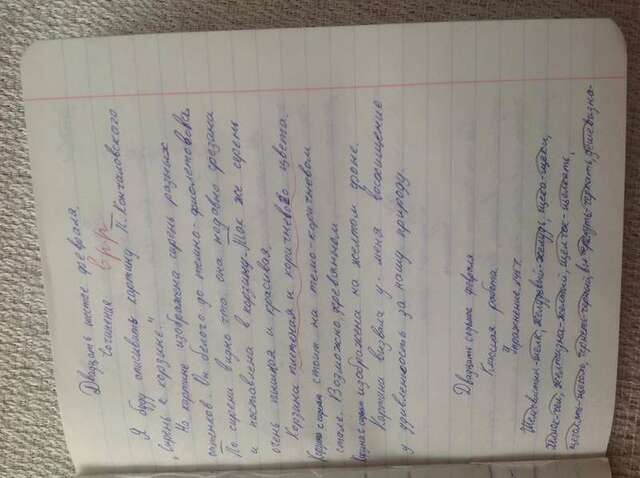 Двадцать шестое февраля.
Сочинение врр
Я буду описывать картину П. Кончаловского
„Сирень в корзине."
На картине изображена сирень разных
оттенков. Он белого до темно-фиолетового.
По сирени видно что она недавно срезана
и поставлена в корзину. Так же сирень
очень пышная и красивая.
Корзина плетеная и коричневого цвета.
Корзина с сиренью стоит на темо-коричневом
столе. Возможно, деревянном
Корзина с сиренью изображена на желтом фоне.
Картина визвала у меня восхищение
и удивленность за нашу природу.
Двадцать седьмое февраля
Классная работа
Упражнение
шелк, желудевый-желудь, щека-щеки,
желтизна-желтый, щелчок-щелкать,
щеголять-щеголь, чернеть-черный, черпать, дешевизна-